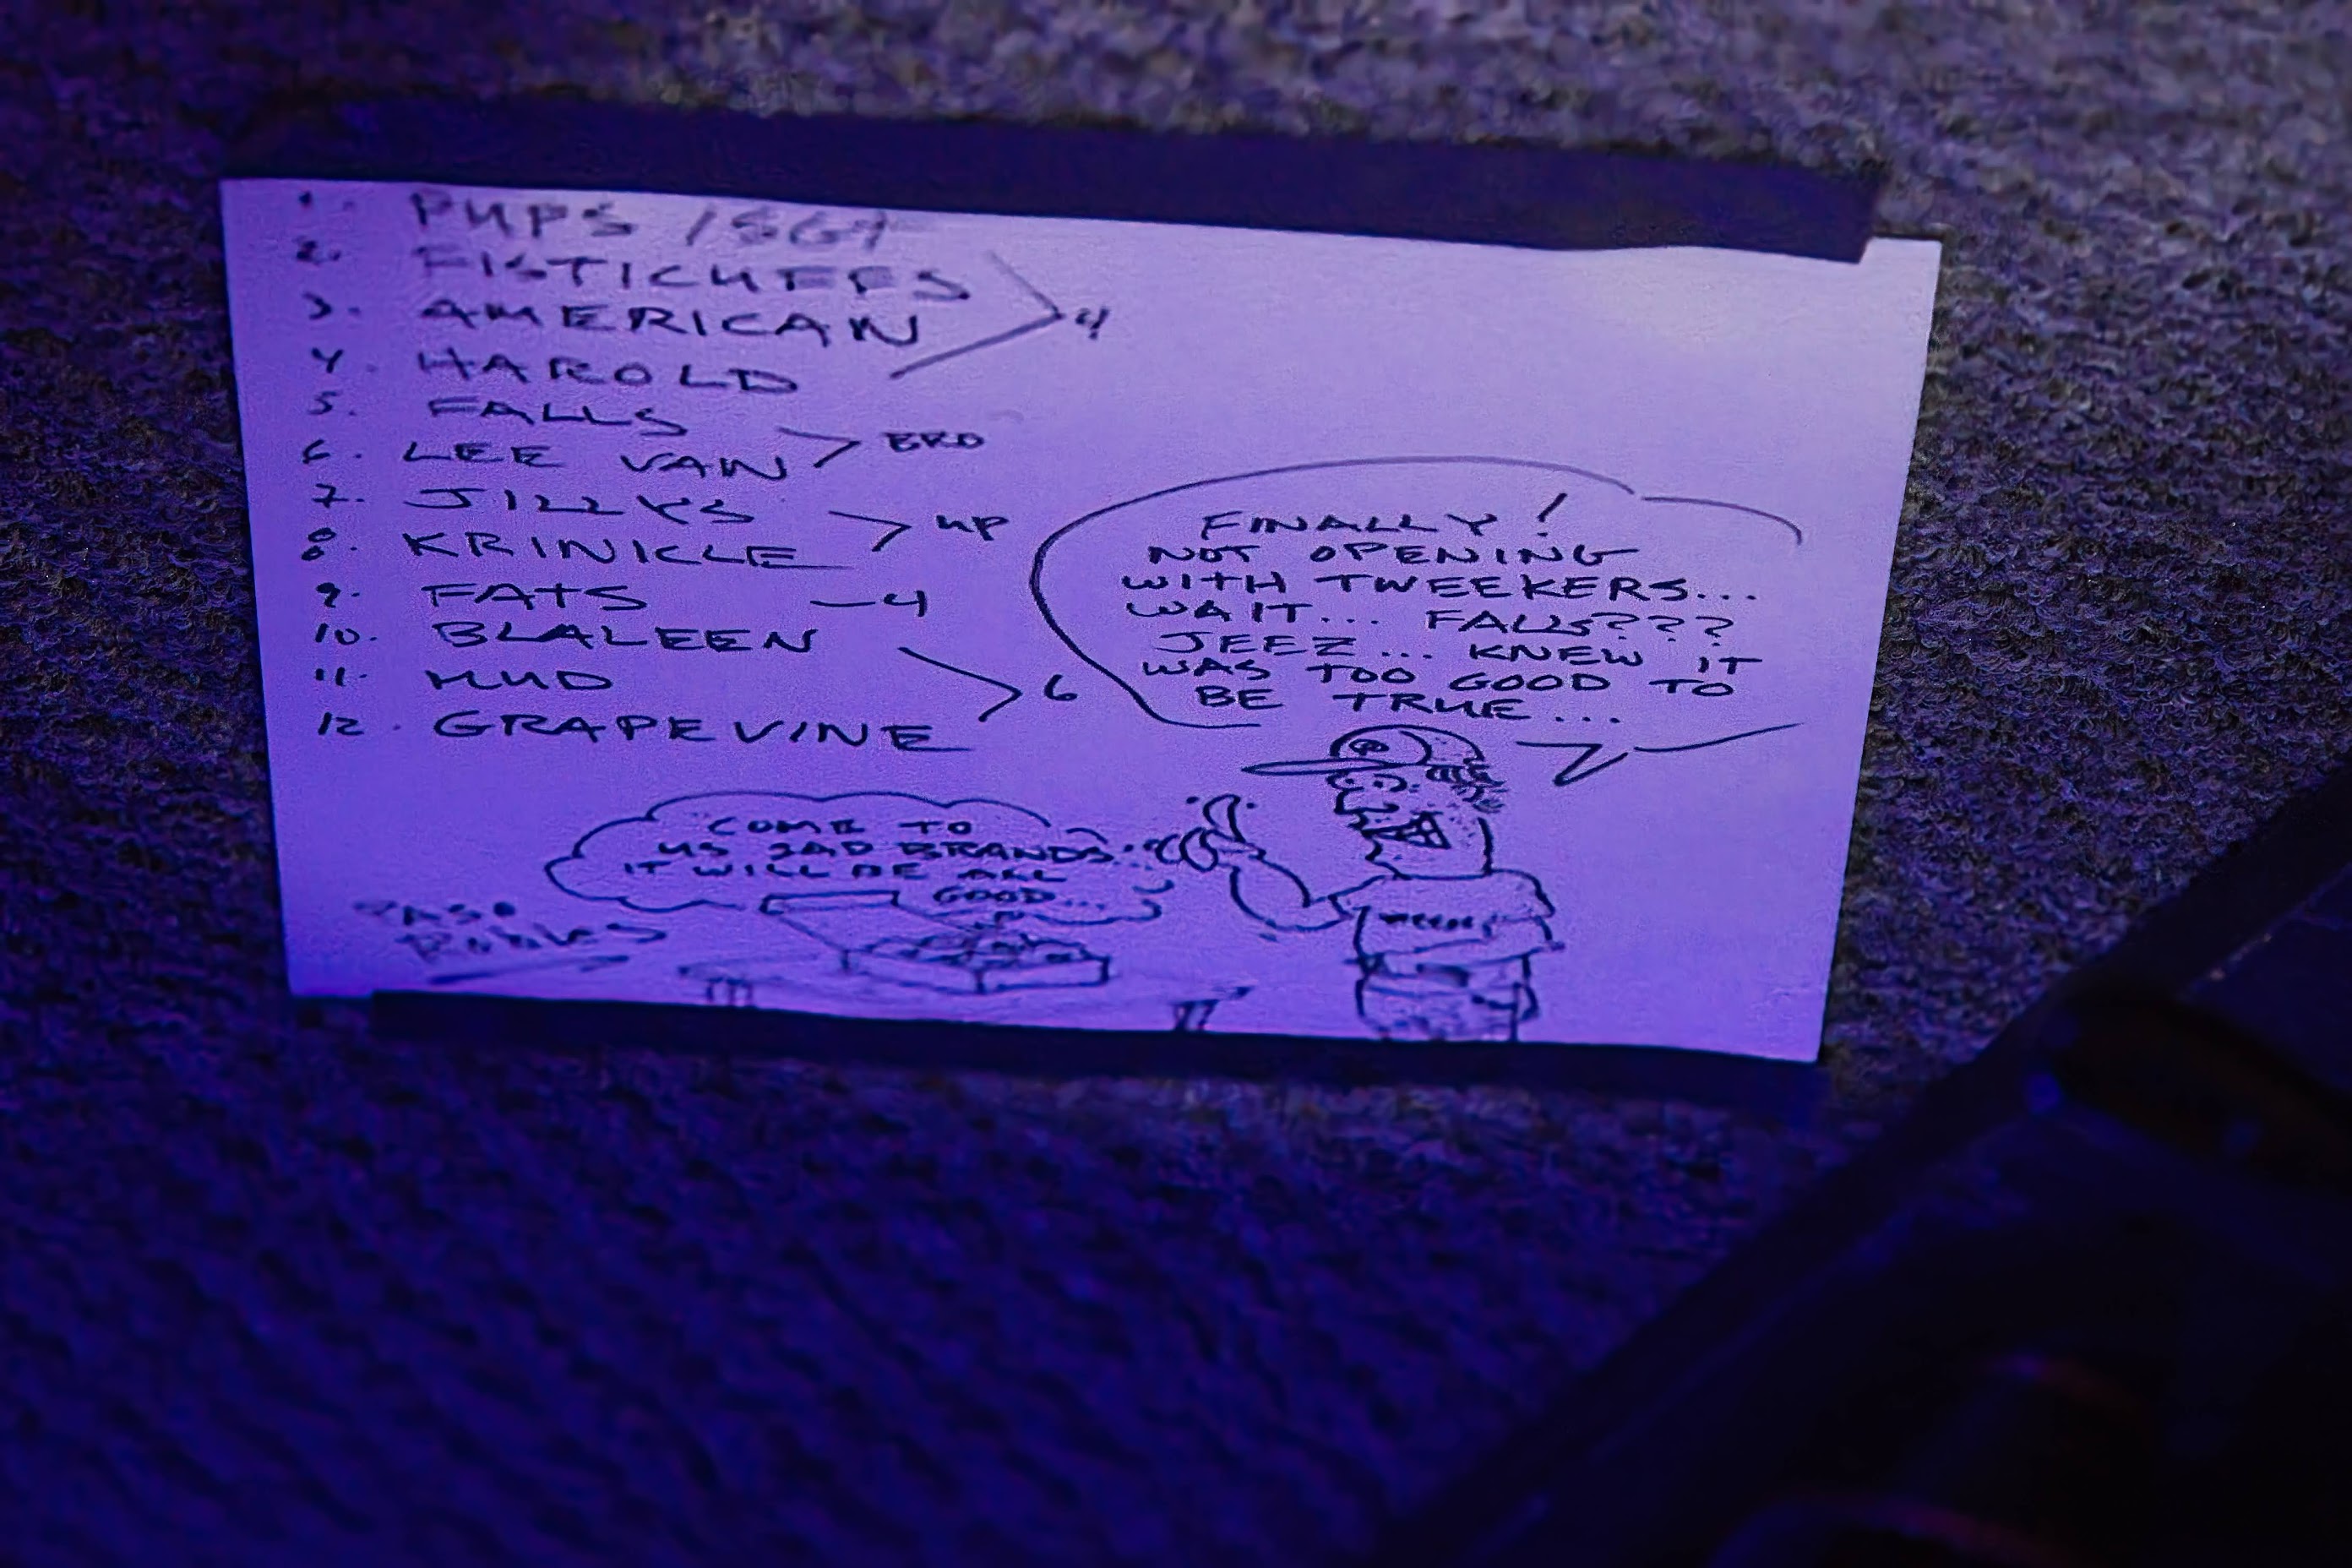 1. PUPS / SGT
2. FISTICUFFS
3. AMERICAN
4
4. HAROLD
5. FALLS
6. LEE VAN
BRO
7. JILLYS
8. KRINKLE
UP
9. FATS
—4
10. BLALEEN
11. MUD
6
12. GRAPEVINE
FINALLY!
NOT OPENING
WITH TWEEKERS...
WAIT... FALLS???
JEEZ... KNEW IT
WAS TOO GOOD TO
BE TRUE...
COME TO
US SAD BRANDS.
IT WILL BE ALL
GOOD...
PASO
ROBLES